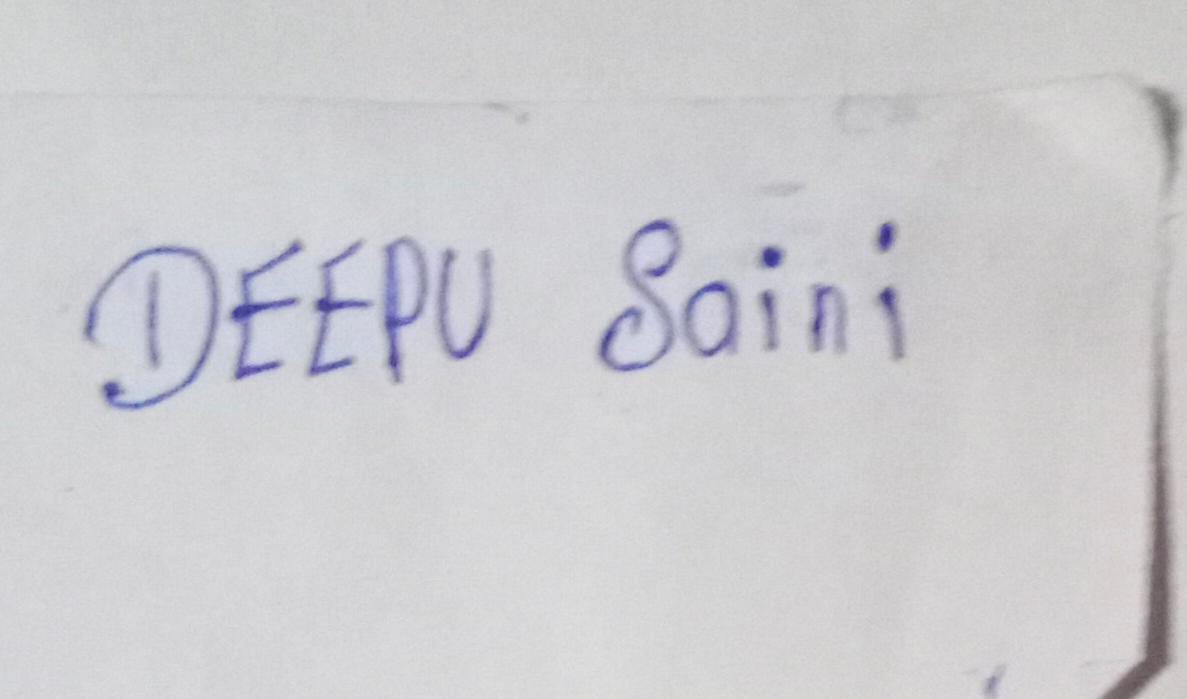 DEEPU Saini